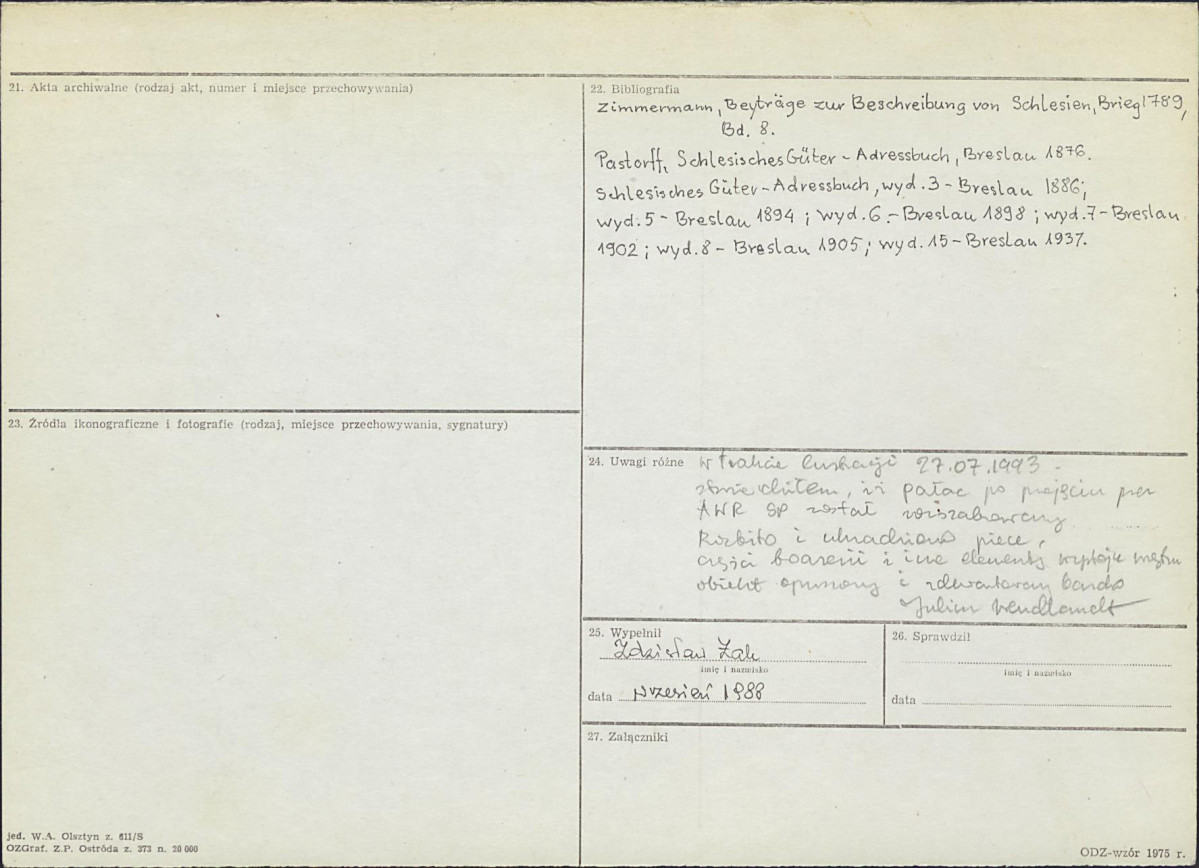 21. Akta archiwalne (rodzaj akt, numer i miejsce przechowywania)
22. Bibliografia
Zimmermann, Beyträge zur Beschreibung von Schlesien, Brieg 1789,
Bd. 8.
Pastorff, Schlesisches Güter - Adressbuch, Breslau 1876.
Schlesisches Güter - Adressbuch, wyd. 3 - Breslau 1886;
wyd. 5 - Breslau 1894; wyd. 6. - Breslau 1898; wyd. 7 - Breslau
1902; wyd. 8 - Breslau 1905; wyd. 15 - Breslau 1937.
23. Źródła ikonograficzne i fotografie (rodzaj, miejsce przechowywania, sygnatury)
24. Uwagi różne w trakcie lustracji 27.07.1993 -
stwierdziłem, iż pałac po przejęciu przez
AWR SP został rozszabrowany
Rozbito i ukradziono piece,
części boazerii i inne elementy wystroju wnętrz
obiekt opuszczony i zdewastowany bardzo
Julian Wendlandt
25. Wypełnił
Zdzisław Żak
imię i nazwisko
data wrzesień 1988
26. Sprawdził
imię i nazwisko
data
27. Załączniki
jed. W.A. Olsztyn z. 611/S
OZGraf. Z.P. Ostróda z. 373 n. 20 000
ODZ-wzór 1975 r.